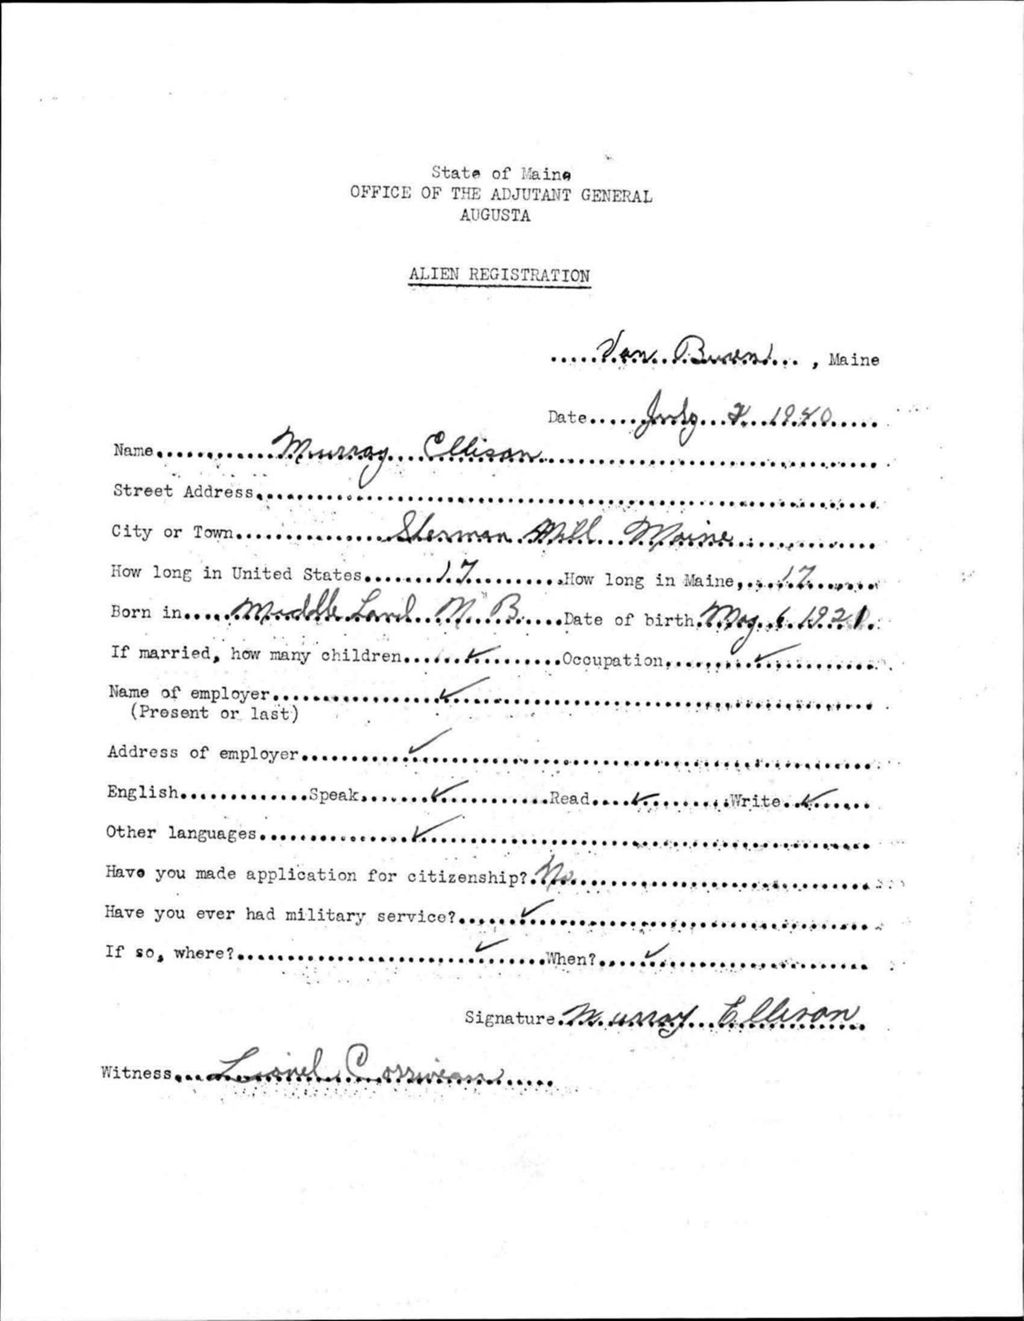 State of Maine
OFFICE OF THE ADJUTANT GENERAL
AUGUSTA
ALIEN REGISTRATION
Van Buren, Maine
Date July 2 1940
Name Murray Ellison
Street Address
City or Town Sherman Mill Maine
How long in United States 17 How long in Maine 17
Born in Land N.B. Date of birth May 6 1921
If married, how many children ✓ Occupation ✓
Name of employer ✓
(Present or last)
Address of employer ✓
English Speak ✓ Read ✓ Write ✓
Other languages ✓
Have you made application for citizenship? No
Have you ever had military service? ✓
If so, where? ✓ When? ✓
Signature Murray Ellison
Witness Lionel